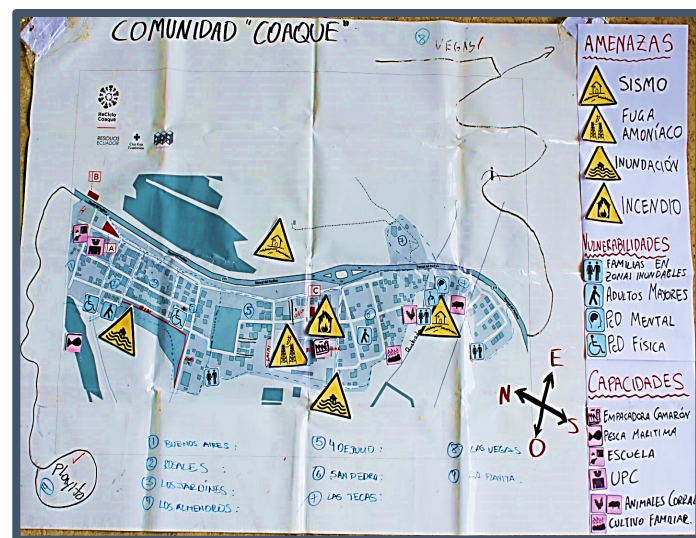 COMUNIDAD "COAQUE"
8 VEGAS
ReCiclo
Coaque
RESIDUOS
ECUADOR
B
A
C
7
5
E
N
S
O
Playita
1 BUENOS AIRES:
2 ROSALES:
3 LOS JARDINES:
4 LOS ALMENDROS:
5 4 DE JULIO:
6 SAN PEDRO:
7 LAS TECAS:
8 LAS VEGAS
9 LA PLAYITA
AMENAZAS
SISMO
FUGA
AMONÍACO
INUNDACIÓN
INCENDIO
VULNERABILIDADES
FAMILIAS EN
ZONAS INUNDABLES
ADULTOS MAYORES
PcD MENTAL
PcD FÍSICA
CAPACIDADES
EMPACADORA CAMARÓN
PESCA MARITIMA
ESCUELA
UPC
ANIMALES CORRAL
CULTIVO FAMILIAR